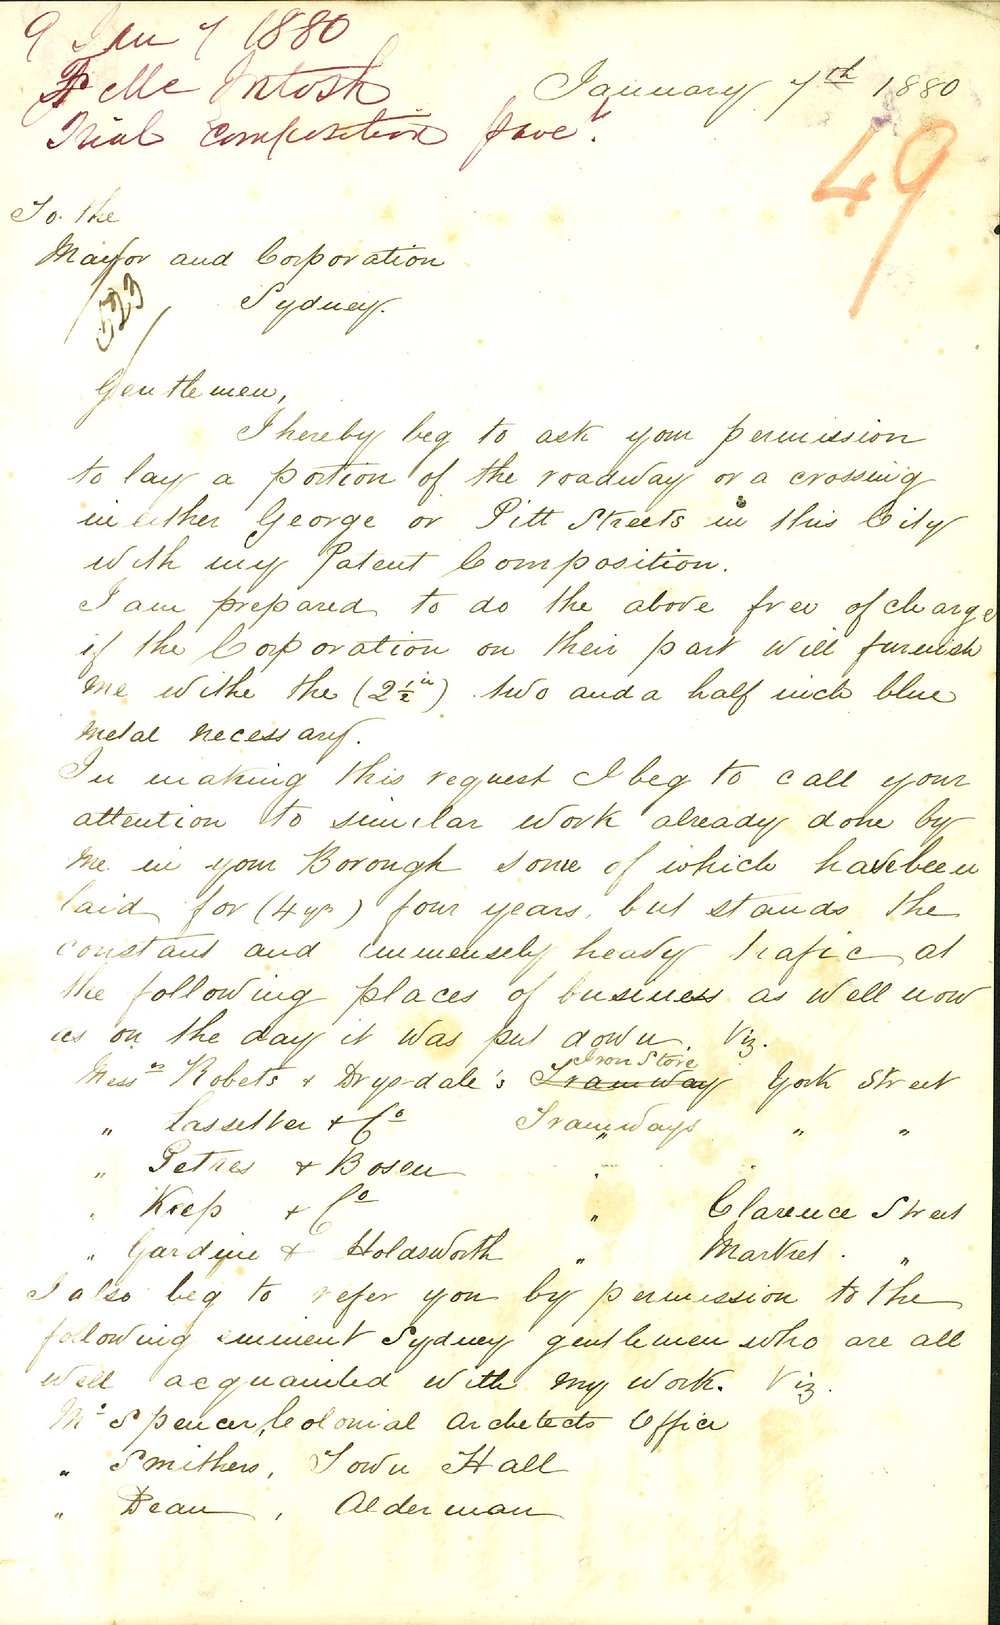 9 Jan 7 1880
F McIntosh
Trial composition pavet.
January 7th 1880
49
To the
Mayor and Corporation
Sydney.
523
Gentlemen,
I hereby beg to ask your permission
to lay a portion of the roadway or a crossing
in either George or Pitt Streets in this City
with my Patent Composition.
I am prepared to do the above free of charge
if the Corporation on their part will furnish
me withe the (2½in) two and a half inch blue
metal necessary.
In making this request I beg to call your
attention to similar work already done by
me in your Borough some of which have been
laid for (4 yrs) four years, but stands the
constant and immensely heavy trafic at
the following places of business as well now
as on the day it was put down. Viz.
Messrs Robets & Drysdale's Tramway Iron Store York Street
" Lassetter & Co Tramways " "
" Petres & Bosen " "
" Keep & Co " Clarence Street
" Gardyne & Holdsworth " Market "
I also beg to refer you by permission to the
following eminent Sydney gentlemen who are all
well acquainted with my work. Viz.
Mr Spencer, Colonial Architects Office
" Smithers, Town Hall
" Dean, Alderman